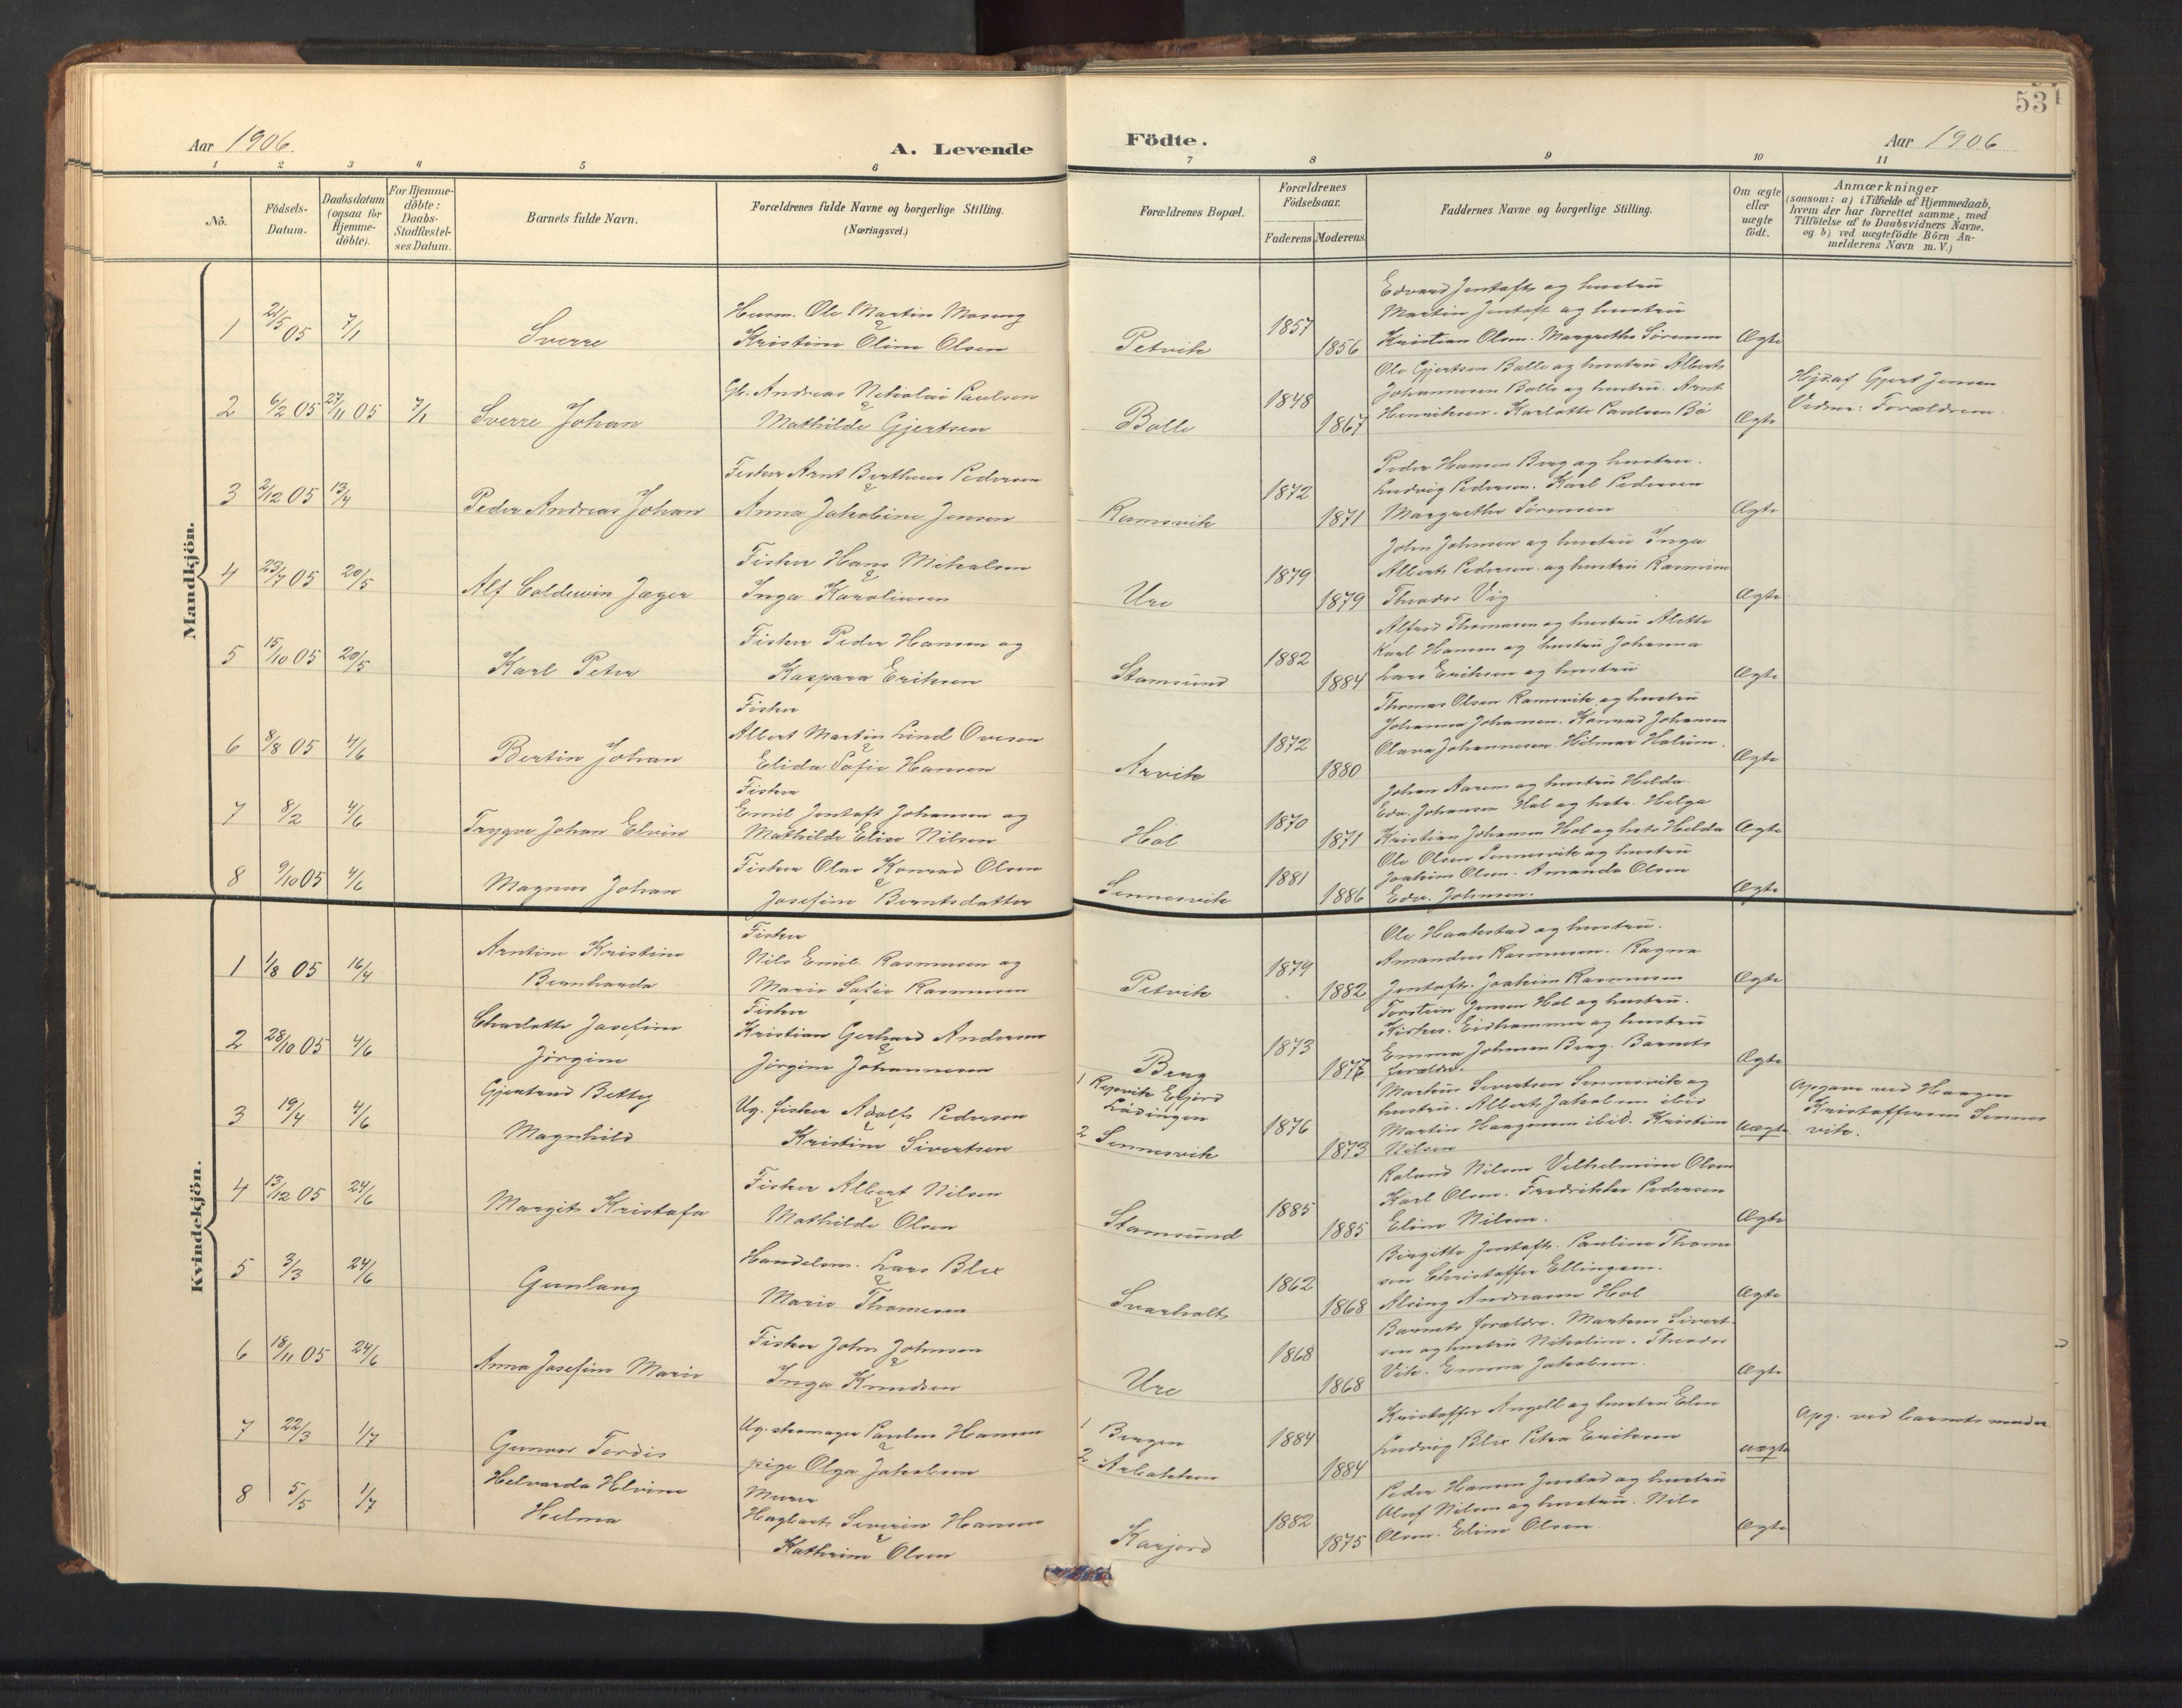 53
Aar 1906.
A. Levende
Födte.
Aar 1906
1 2 3 4 5 6 7 8 9 10 11
No.
Födsels-
Datum.
Daabsdatum
(ogsaa for
Hjemme-
döbte).
For Hjemme-
döbte:
Daabs-
Stadfæstel-
ses Datum.
Barnets fulde Navn.
Forældrenes fulde Navne og borgerlige Stilling.
(Næringsvei.)
Forældrenes Bopæl.
Forældrenes
Födselsaar.
Faderens. Moderens.
Faddernes Navne og borgerlige Stilling.
Om ægte
eller
uægte
født.
Anmærkninger
(saasom: a) i Tilfælde af Hjemmedaab,
hvem der har forrettet samme, med
Tilföielse af to Daabsvidners Navne,
og b) ved uægtefödte Börn An-
melderens Navn m. V.)
Mandkjön.
1 21/5 05 7/1 Sverre
Husm. Ole Martin Moseng
&
Kristine Oline Olsen
Petvik 1857 1856
Edvard Jentoft og hustru
Martin Jentoft og hustru
Kristian Olsen. Margrethe Sörensen Ægte
2 6/2 05 27/11 05 7/1 Sverre Johan
Gb. Andreas Nikolai Paulsen
&
Mathilde Gjertsen
Balle 1848 1867
Ole Gjertsen Balle og hustru. Alberts
Johannesen Balle og hustru. Arnt
Henriksen. Karlotte Paulsen Bö Ægte
Hjd. af Gjert Jensen
Vidner: Forældrene.
3 2/12 05 13/4 Peder Andreas Johan
Fisker Arnt Bertheus Pedersen
&
Anna Jakobine Jensen
Ramsvik 1872 1871
Peder Hansen Berg og hustru.
Ludvig Pedersen. Karl Pedersen
Margrethe Sörensen Ægte
4 23/7 05 20/5 Alf Coldevin Jæger
Fisker Hans Mikalsen
&
Inga Karoliusen
Ure 1879 1879
John Johnsen og hustru Inga
Albert Pedersen og hustru Rasmine
Theodor Vig Ægte
5 15/10 05 20/5 Karl Peter
Fisker Peder Hansen og
Kaspara Eriksen
Stamsund 1882 1884
Alfred Thomassen og hustru Alette
Karl Hansen og hustru Johanna
Lars Eriksen og hustru Ægte
6 8/8 05 4/6 Bertin Johan
Fisker
Albert Martin Lind Ovesen
&
Elida Sofie Hansen
Arvik 1872 1880
Thomas Olsen Ramsvik og hustru
Johanna Johansen. Konrad Johansen
Olava Johannesen. Hilmar Holum. Ægte
7 8/2 4/6 Trygve Johan Elvin
Fisker
Emil Jentoft Johansen og
Mathilde Elise Nilsen
Hol 1870 1871
Johan Aasen og hustru Hilda
Edv. Johansen Hol og hstr. Helga
Kristian Johansen Hol og hstr Hilda Ægte
8 9/10 05 4/6 Magnus Johan
Fisker Olav Konrad Olsen
&
Josefine Berntsdatter
Sennesvik 1881 1886
Ole Olsen Sennesvik og hustru
Joakim Olsen. Amanda Olsen
Edv. Johnsen. Ægte
Kvindekjön.
1 1/8 05 16/4
Arntine Kristine
Bernharda
Fisker
Nils Emil Rasmussen og
Marie Sofie Rasmussen
Petvik 1879 1882
Ole Haakestad og hustru.
Amandus Rasmussen. Ragna
Jentoft. Joakim Rasmussen Ægte
2 28/10 05 4/6
Charlotte Josefine
Jörgine
Fisker
Kristian Gerhard Andersen
&
Jörgine Johannesen
Berg 1873 1877
Torstein Jensen Hol og hustru.
Kirkes. Eidhammer og hustru
Emma Johnsen Berg. Barnets
forældre. Ægte
3 19/4 4/6
Gjertrud Betty
Magnhild
Ug. fisker Adolf Pedersen
&
Kristine Sivertsen
1 Repvik Efjord
Lödingen
2 Sennesvik
1876 1873
Martin Sivertsen Sennesvik og
hustru. Albert Jakobsen ibid
Martin Haagensen ibid. Kristine
Nilsen uægte
Opgave ved Haagen
Kristoffersen Sennes
vik.
4 13/12 05 24/6 Margit Kristofa
Fisker Albert Nilsen
&
Mathilde Olsen
Stamsund 1885 1885
Roland Nilsen Vilhelmine Olsen
Karl Olsen. Fredrikke Pedersen
Eline Nilsen. Ægte
5 3/3 24/6 Gunlaug
Handelsm. Lars Blix
&
Marie Thomesen
Svarholt 1862 1868
Birgitte Jentoft. Pauline Thome
sen Christoffer Ellingsen.
Alving Andreasen Hol Ægte
6 18/11 05 24/6 Anna Josefine Marie
Fisker John Johnsen
&
Inga Knudsen
Ure 1868 1868
Barnets forældre. Martens Sivert
sen og hustru Nikoline. Theodor
Vik. Emma Jakobsen. Ægte
7 22/3 1/7 Gunvor Tordis
Ug. skomager Paulus Hansen
&
pige Olga Jakobsen
1 Bergen
2
1884 1884
Kristoffer Angell og hustru Elen
Ludvig Blix Petra Eriksen uægte
Opg. ved barnets moder.
8 5/5 1/7
Helvarda Elvine
Helma
Murer
Hagbart Severin Hansen
&
Kathrine Olsen
Karjord 1882 1875
Peder Hansen Justad og hustru
Oluf Nilsen og hustru. Nils
Olsen. Eline Olsen. Ægte